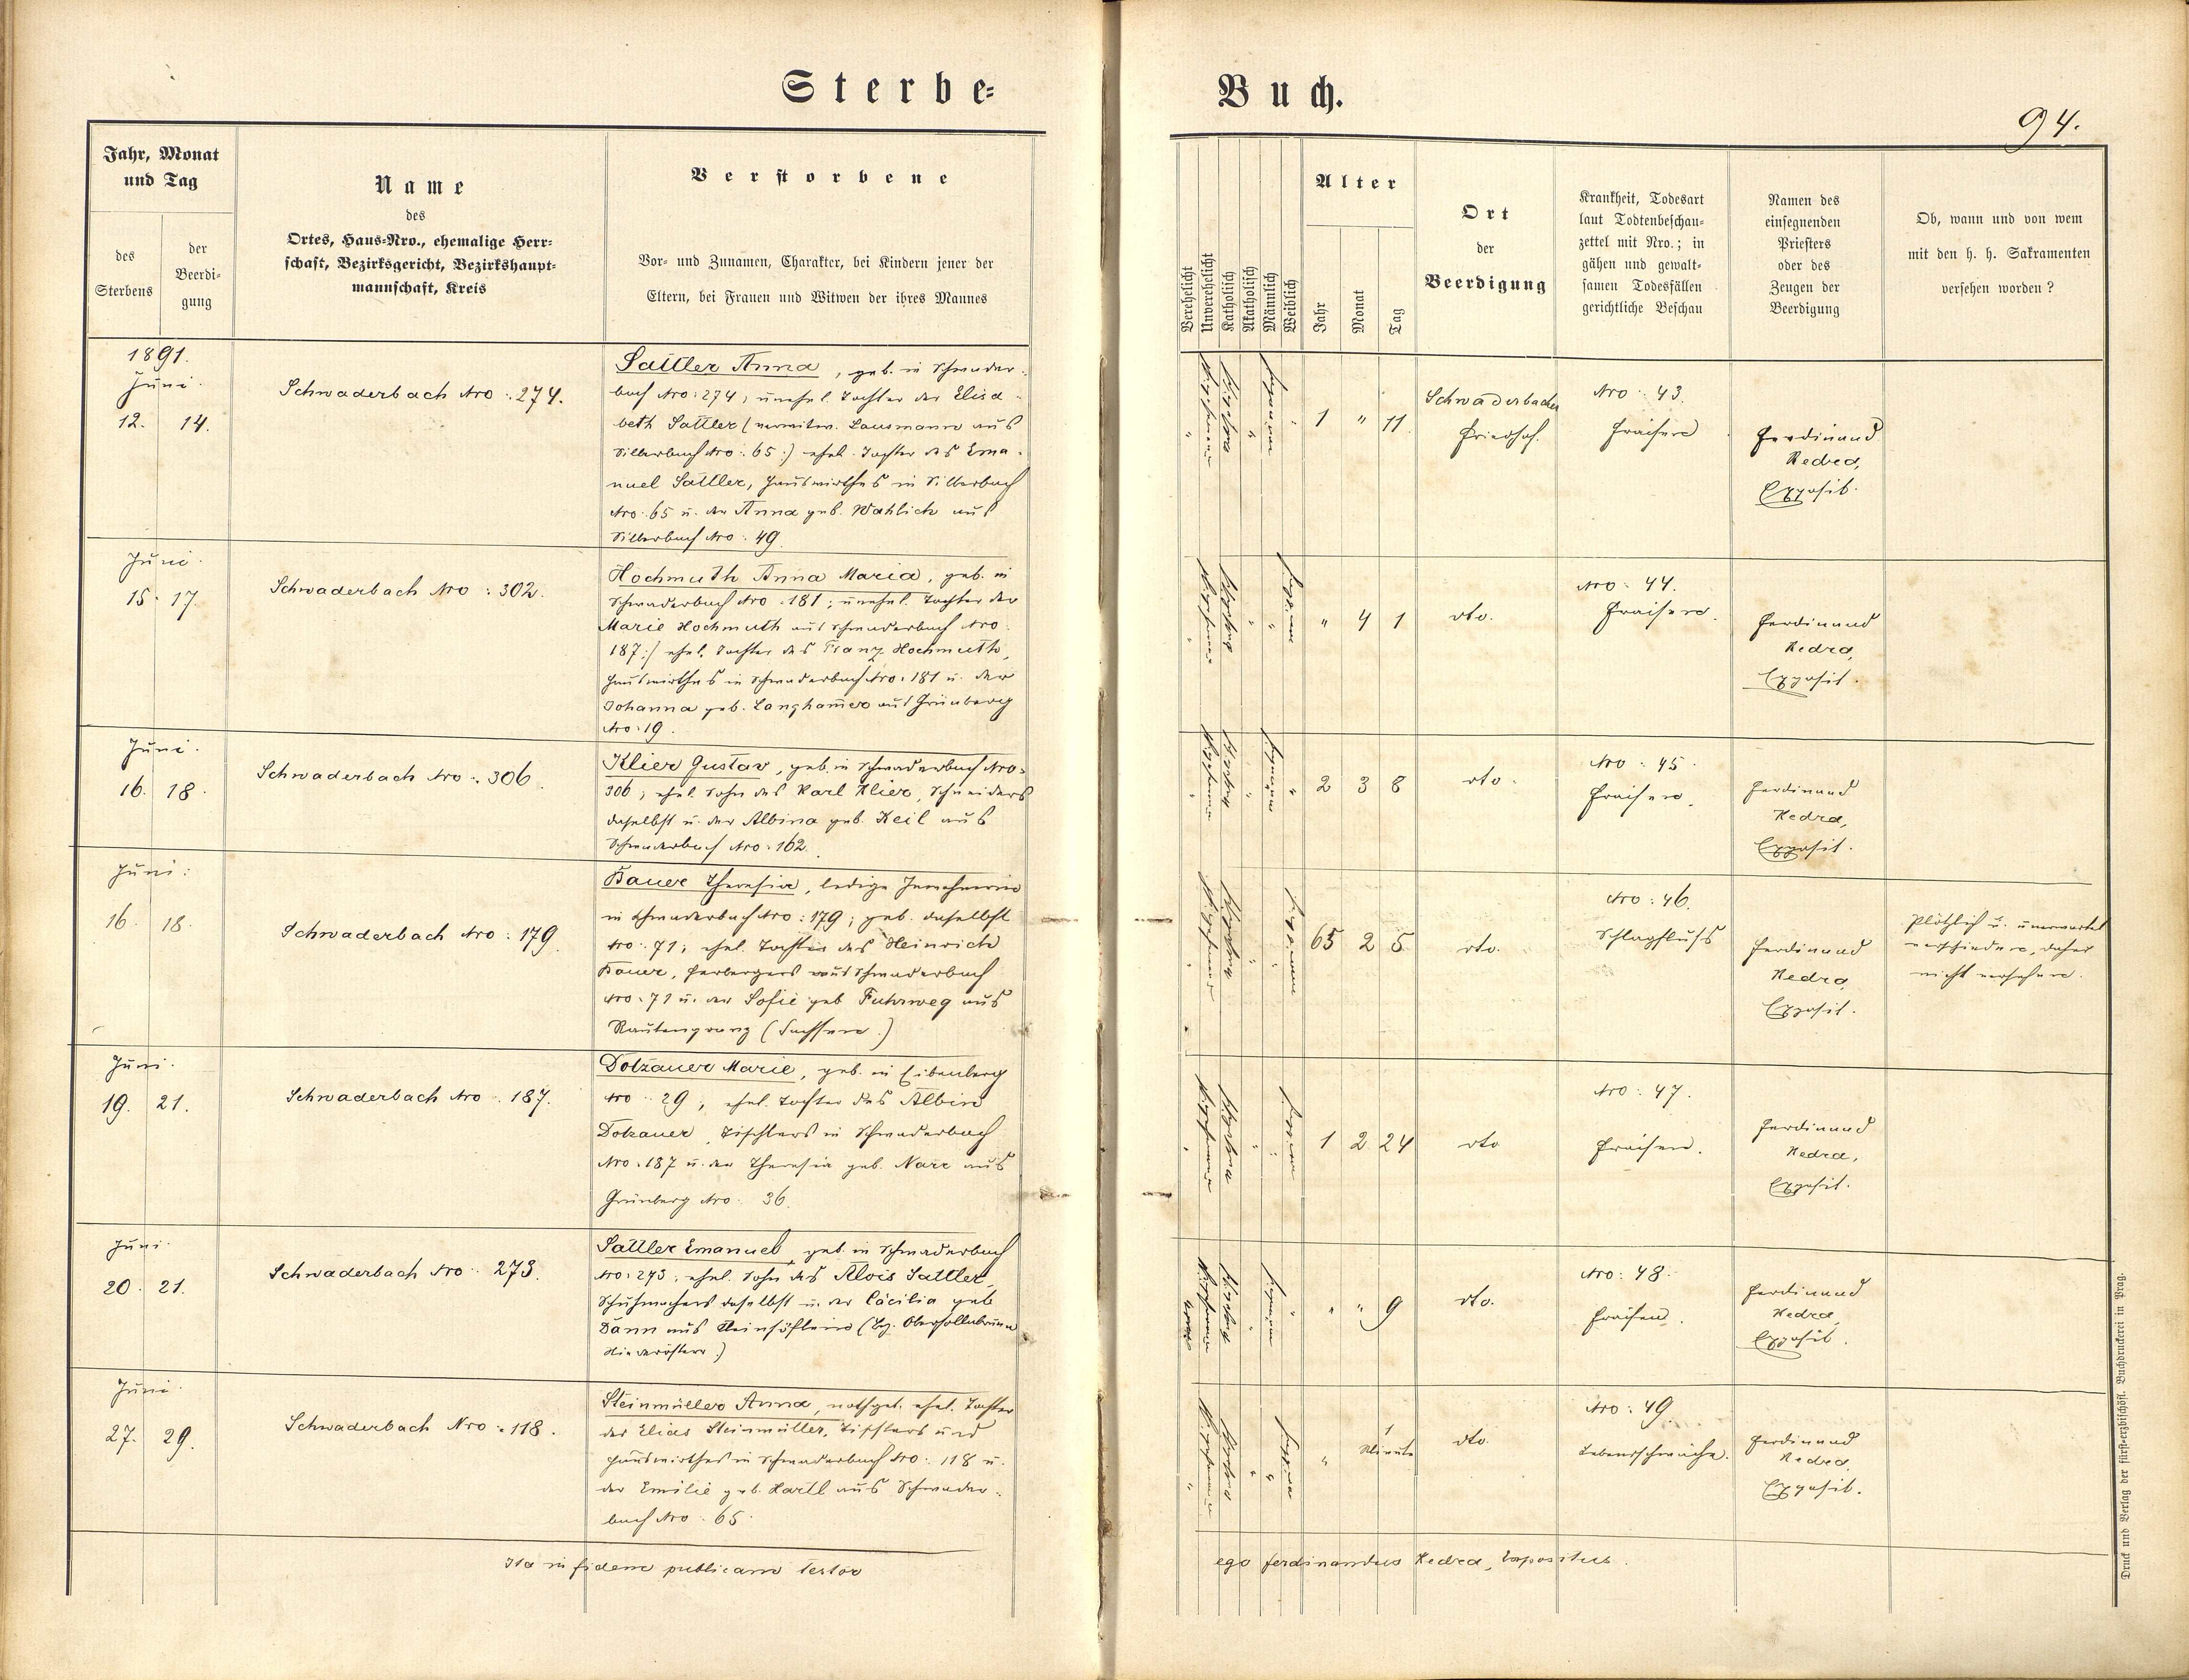 Sterbe-
Buch.
94.
Jahr, Monat
und Tag
des
Sterbens
der
Beerdi-
gung
Name
des
Ortes, Haus-Nro., ehemalige Herr-
schaft, Bezirksgericht, Bezirkshaupt-
mannschaft, Kreis
Verstorbene
Vor- und Zunamen, Charakter, bei Kindern jener der
Eltern, bei Frauen und Witwen der ihres Mannes
Verehelicht
Unverehelicht
Katholisch
Akatholisch
Männlich
Weiblich
Alter
Jahr
Monat
Tag
Ort
der
Beerdigung
Krankheit, Todesart
laut Todtenbeschau-
zettel mit Nro.; in
gähen und gewalt-
samen Todesfällen
gerichtliche Beschau
Namen des
einsegnenden
Priesters
oder des
Zeugen der
Beerdigung
Ob, wann und von wem
mit den h. h. Sakramenten
versehen worden?
1891.
Juni.
12. 14.
Schwaderbach Nro: 274.
Sattler Anna, geb. in Schwader-
bach Nro: 274, unehel. Tochter der Elisa-
beth Sattler (verwitw. Lausmann aus
Silberbach Nro: 65:) ehel. Tochter des Ema-
nuel Sattler, Hauswirthes in Silberbach
Nro: 65 u. der Anna geb. Wahlich aus
Silberbach Nro: 49.
1 " 11
Schwaderbacher
Friedhof.
Nro: 43.
Fraisen
Ferdinand
Kedra,
Exposit.
Juni.
15. 17.
Schwaderbach Nro: 302.
Hochmuth Anna Maria, geb. in
Schwaderbach Nro: 181; unehel. Tochter der
Marie Hochmuth aus Schwaderbach Nro
187:/ ehel. Tochter des Franz Hochmuth,
Hauswirthes in Schwaderbach Nro: 181 u. der
Johanna geb. Langhamer aus Grünberg
Nro: 19.
" 4 1
dto.
Nro: 44.
Fraisen.
Ferdinand
Kedra,
Exposit.
Juni.
16. 18.
Schwaderbach Nro: 306.
Klier Gustav, geb. in Schwaderbach Nro:
306; ehel. Sohn des Karl Klier, Schneiders
daselbst u. der Albina geb. Keil aus
Schwaderbach Nro: 162.
2 3 8
dto.
Nro: 45.
Fraisen.
Ferdinand
Kedra,
Exposit.
Juni:
16. 18.
Schwaderbach Nro: 179.
Bauer Theresia, ledige Inwohnerin
in Schwaderbach Nro: 179; geb. daselbst
Nro: 71; ehel. Tochter des Heinrich
Bauer, Herbergers aus Schwaderbach
Nro: 71 u. der Sofie geb. Fuhrweg aus
Rautengranz (Sachsen.)
65 2 5
dto.
Nro: 46.
Schlagfluss
Ferdinand
Kedra,
Exposit.
Plötzlich u. unerwartet
verschieden, daher
nicht versehen.
Juni.
19. 21.
Schwaderbach Nro: 187.
Dotzauer Marie, geb. in Eibenberg
Nro: 29, ehel. Tochter des Albin
Dotzauer, Tischlers in Schwaderbach
Nro: 187 u. der Theresia geb. Narr aus
Grünberg Nro: 36.
1 2 24
dto
Nro: 47.
Fraisen.
Ferdinand
Kedra,
Exposit.
Juni.
20. 21.
Schwaderbach Nro: 273.
Sattler Emanuel, geb. in Schwaderbach
Nro: 273; ehel. Sohn des Alois Sattler,
Schuhmachers daselbst u. der Cäcilia geb.
Dann aus (Bz. Oberhollabrunn
Niederösterr.)
" " 9
dto.
Nro: 48.
Fraisen.
Ferdinand
Kedra,
Exposit.
Juni.
27. 29.
Schwaderbach Nro: 118.
Steinmüller Anna, nothget. ehel. Tochter
des Elias Steinmüller, Tischlers und
Hauswirthes in Schwaderbach Nro: 118 u.
der Emilie geb. Hartl aus Schwader-
bach Nro: 65.
" 1
Minute
dto.
Nro: 49.
Lebensschwäche.
Ferdinand
Kedra,
Exposit.
Ita in fidem publicam testor
ego Ferdinandus Kedra, Expositus.
Druck und Verlag der fürst-erzbischöfl. Buchdruckerei in Prag.